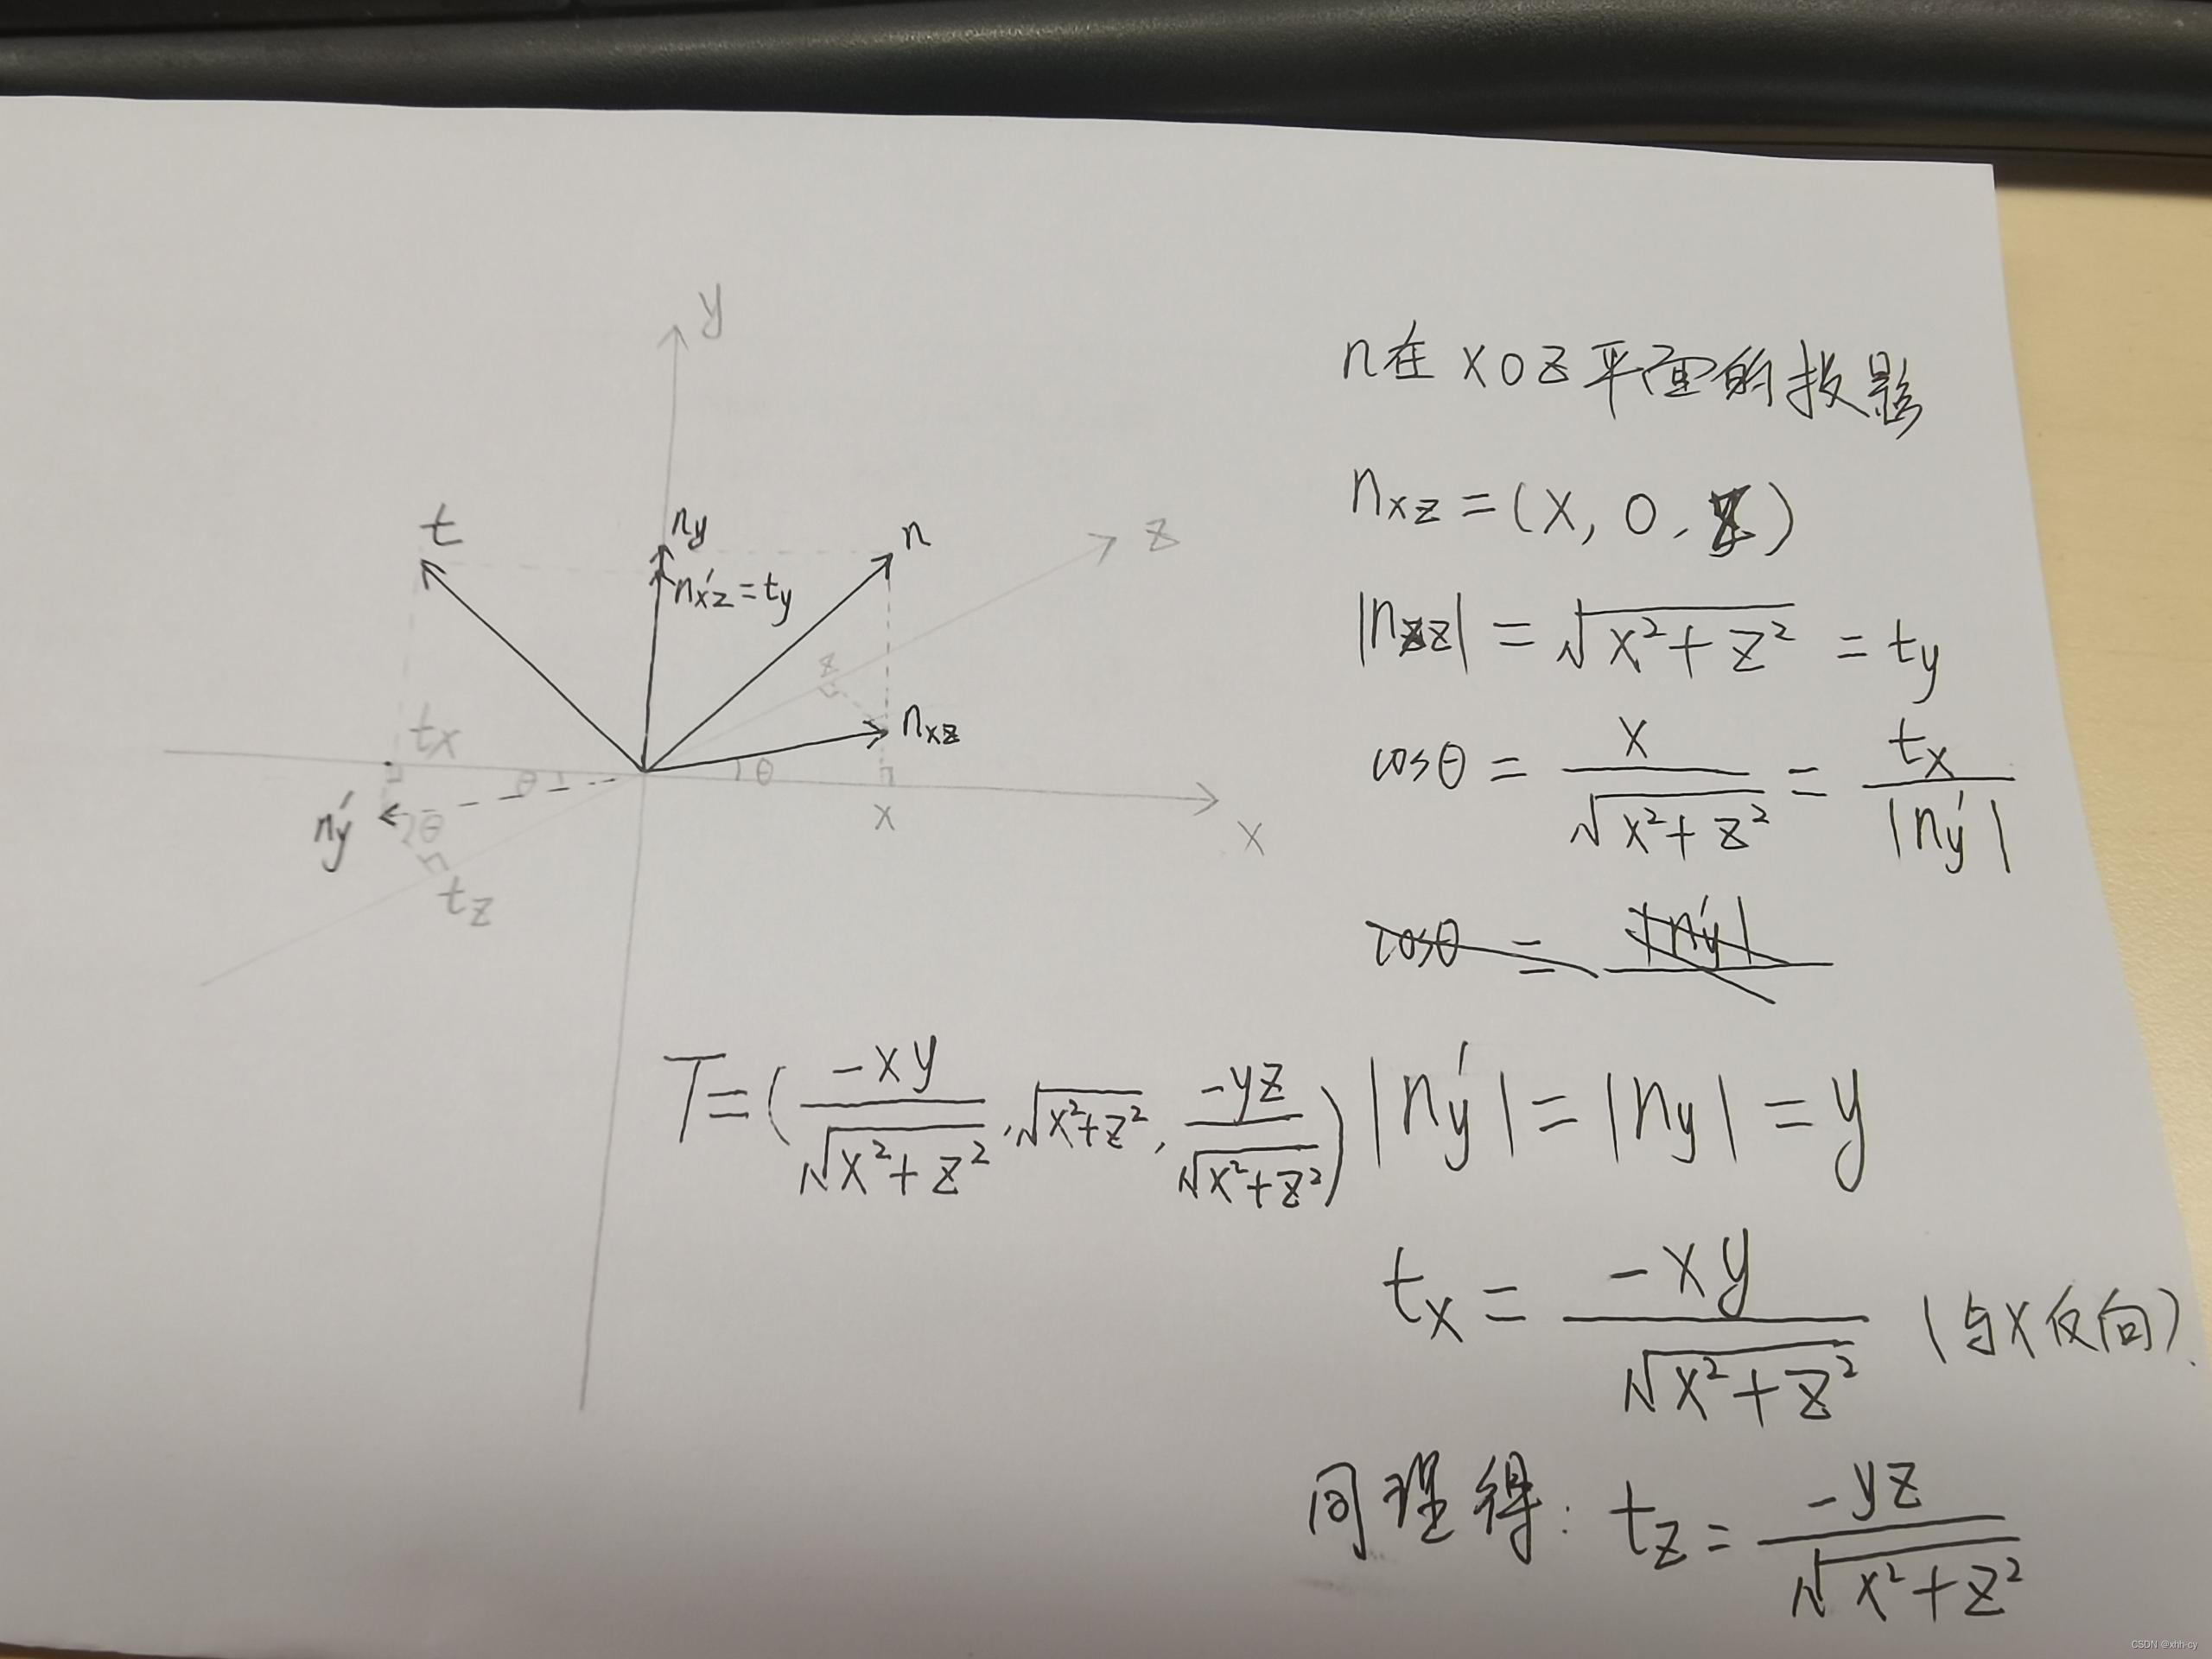 y
t
ny
n
z
n'xz = ty
z
tx
nxz
θ
θ
x
n'y
θ
x
tz
n在xoz平面的投影
nxz = (x, 0, z)
|nxz| = √(x²+z²) = ty
cosθ = x/√(x²+z²) = tx/|n'y|
cosθ = |n'y|
T = (-xy/√(x²+z²), √(x²+z²), -yz/√(x²+z²))
|n'y| = |ny| = y
tx = -xy/√(x²+z²) (与x反向)
同理得: tz = -yz/√(x²+z²)
CSDN @xhh-cy